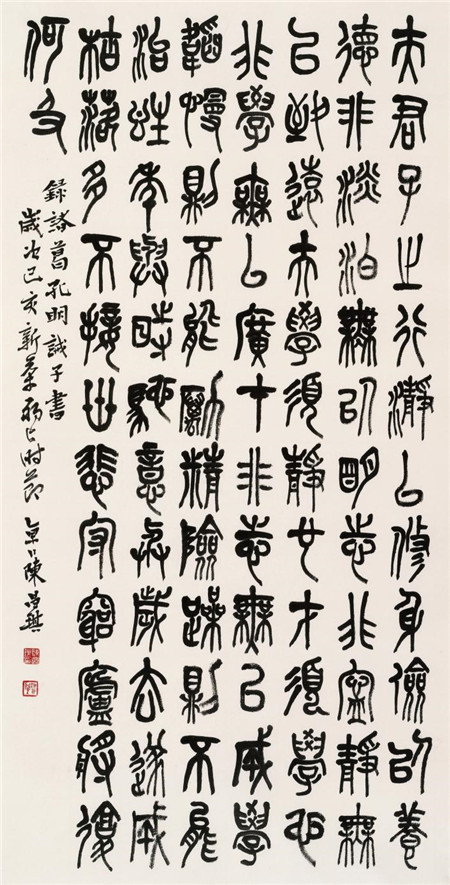 夫君子之行瀞以修身儉以養
德非淡泊無以明志非寧靜無
以致遠夫學須靜也才須學也
非學無以廣才非志無以成學
韜慢則不能勵精險躁則不能
治性年與時馳意與歲去遂成
枯落多不接世悲守窮廬將復
何及
錄諸葛孔明誡子書
歲次己亥新時節陳